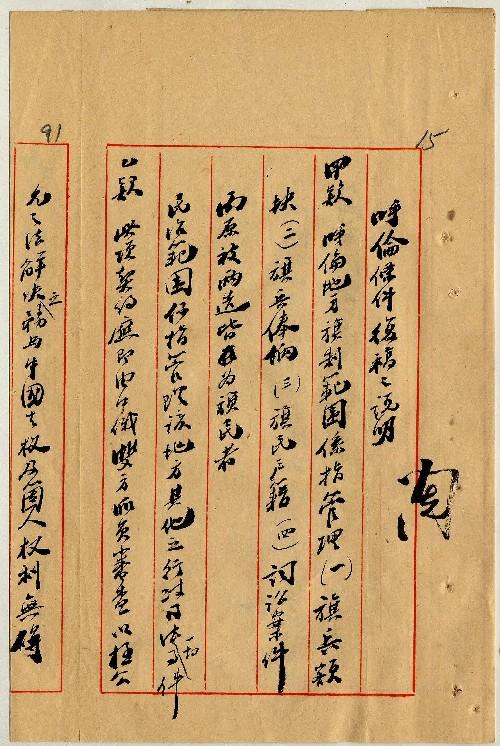 15
呼倫條件復稿之説明
甲款 呼倫地方旗制範圍係指管理(一)旗兵額
缺(二)旗兵俸餉(三)旗民户籍(四)詞訟案件
而原被兩造皆為旗民者
民治範圍係指管理該地方其他之行政司法一切事件
乙款 此項契約應即由中俄雙方派員審查以極公
91
允之法解決之務与中國主权及箇人权利無碍